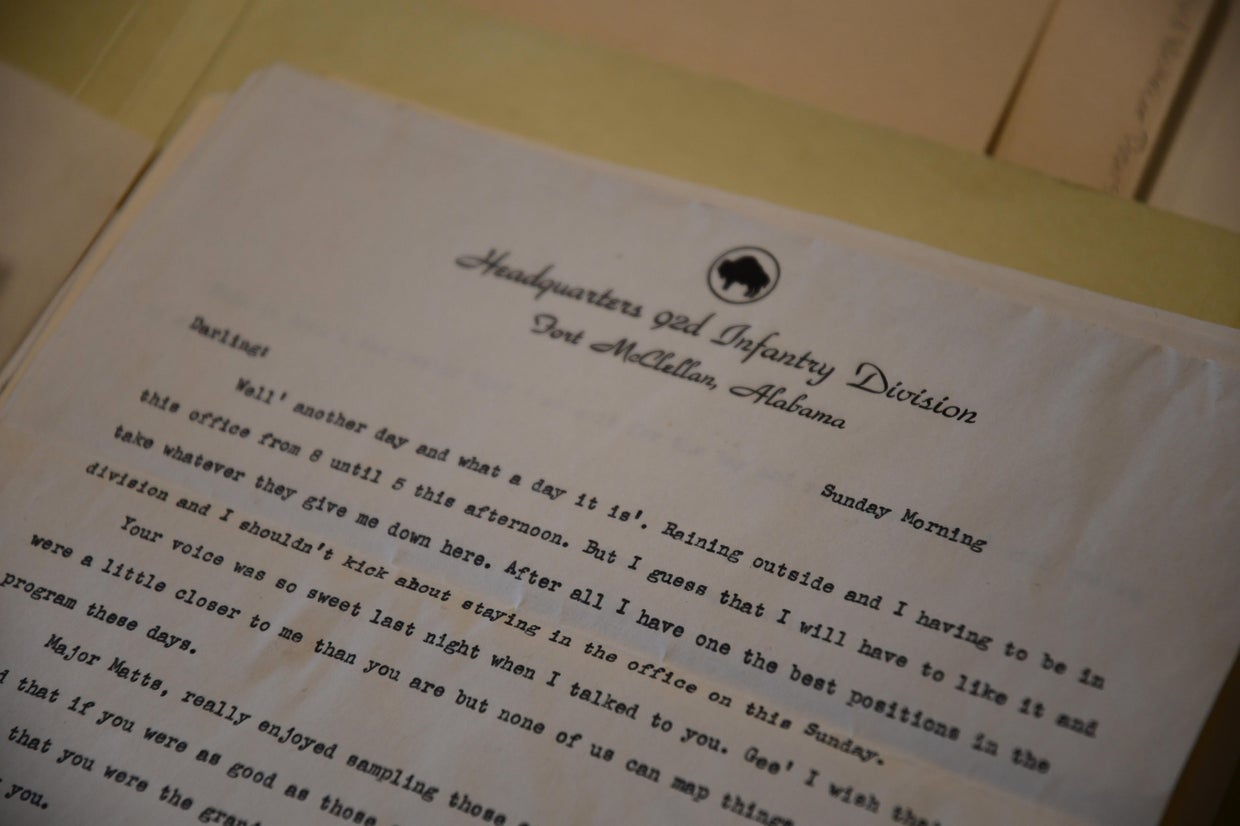 Headquarters 92d Infantry Division
Fort McClellan, Alabama
Sunday Morning
Darling:
Well' another day and what a day it is'. Raining outside and I having to be in
this office from 8 until 5 this afternoon. But I guess that I will have to like it and
take whatever they give me down here. After all I have one the best positions in the
division and I shouldn't kick about staying in the office on this Sunday.
Your voice was so sweet last night when I talked to you. Gee' I wish that
were a little closer to me than you are but none of us can map things
program these days.
Major Matts, really enjoyed sampling those
that if you were as good as those
that you were the
you.